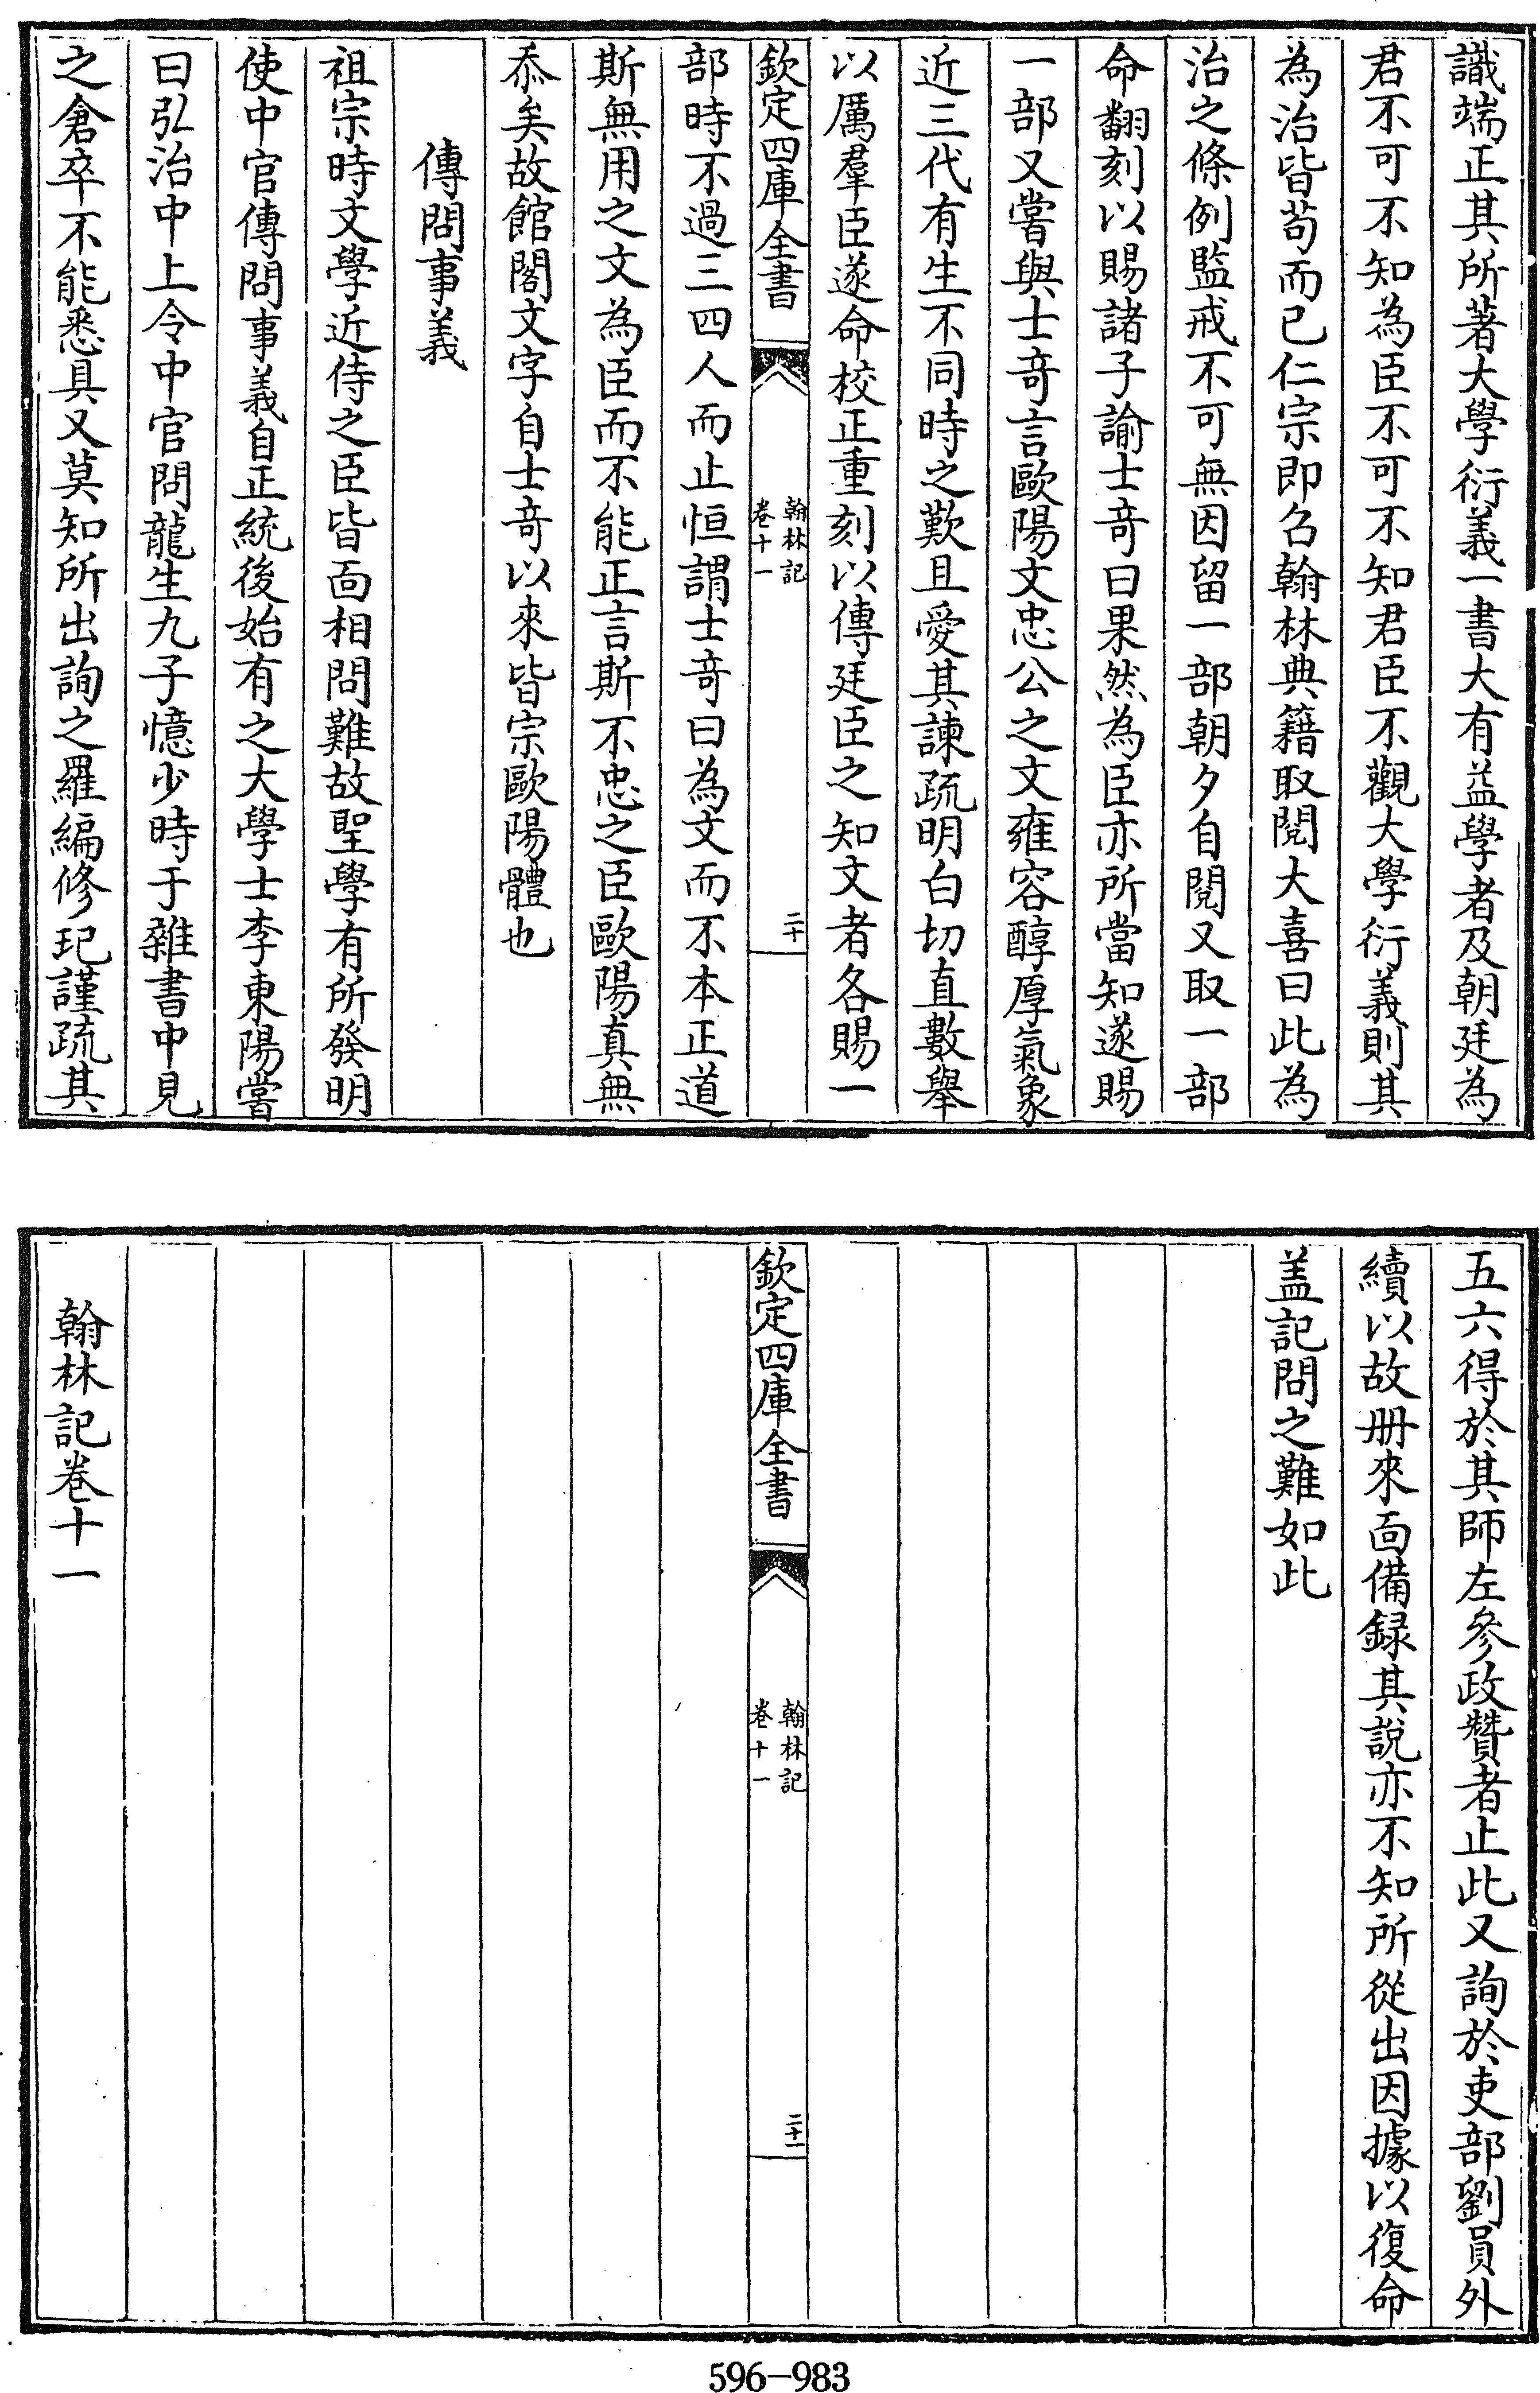 識端正其所著大學衍義一書大有益學者及朝廷為
君不可不知為臣不可不知君臣不觀大學衍義則其
為治皆苟而已仁宗即名翰林典籍取閱大喜曰此為
治之條例監戒不可無因留一部朝夕自閱又取一部
命翻刻以賜諸子諭士竒曰果然為臣亦所當知遂賜
一部又嘗與士竒言歐陽文忠公之文雍容醇厚氣象
近三代有生不同時之歎且愛其諫疏明白切直數舉
以厲羣臣遂命校正重刻以傳廷臣之知文者各賜一
欽定四庫全書
翰林記
卷十一
二十
部時不過三四人而止恒謂士竒曰為文而不本正道
斯無用之文為臣而不能正言斯不忠之臣歐陽真無
忝矣故館閣文字自士竒以來皆宗歐陽體也
傳問事義
祖宗時文學近侍之臣皆面相問難故聖學有所發明
使中官傳問事義自正統後始有之大學士李東陽嘗
曰弘治中上令中官問龍生九子憶少時于雜書中見
之倉卒不能悉具又莫知所出詢之羅編修玘謹疏其
五六得於其師左參政贊者止此又詢於吏部劉員外
續以故册來面備録其說亦不知所從出因據以復命
盖記問之難如此
欽定四庫全書
翰林記
卷十一
二十一
翰林記卷十一
596-983